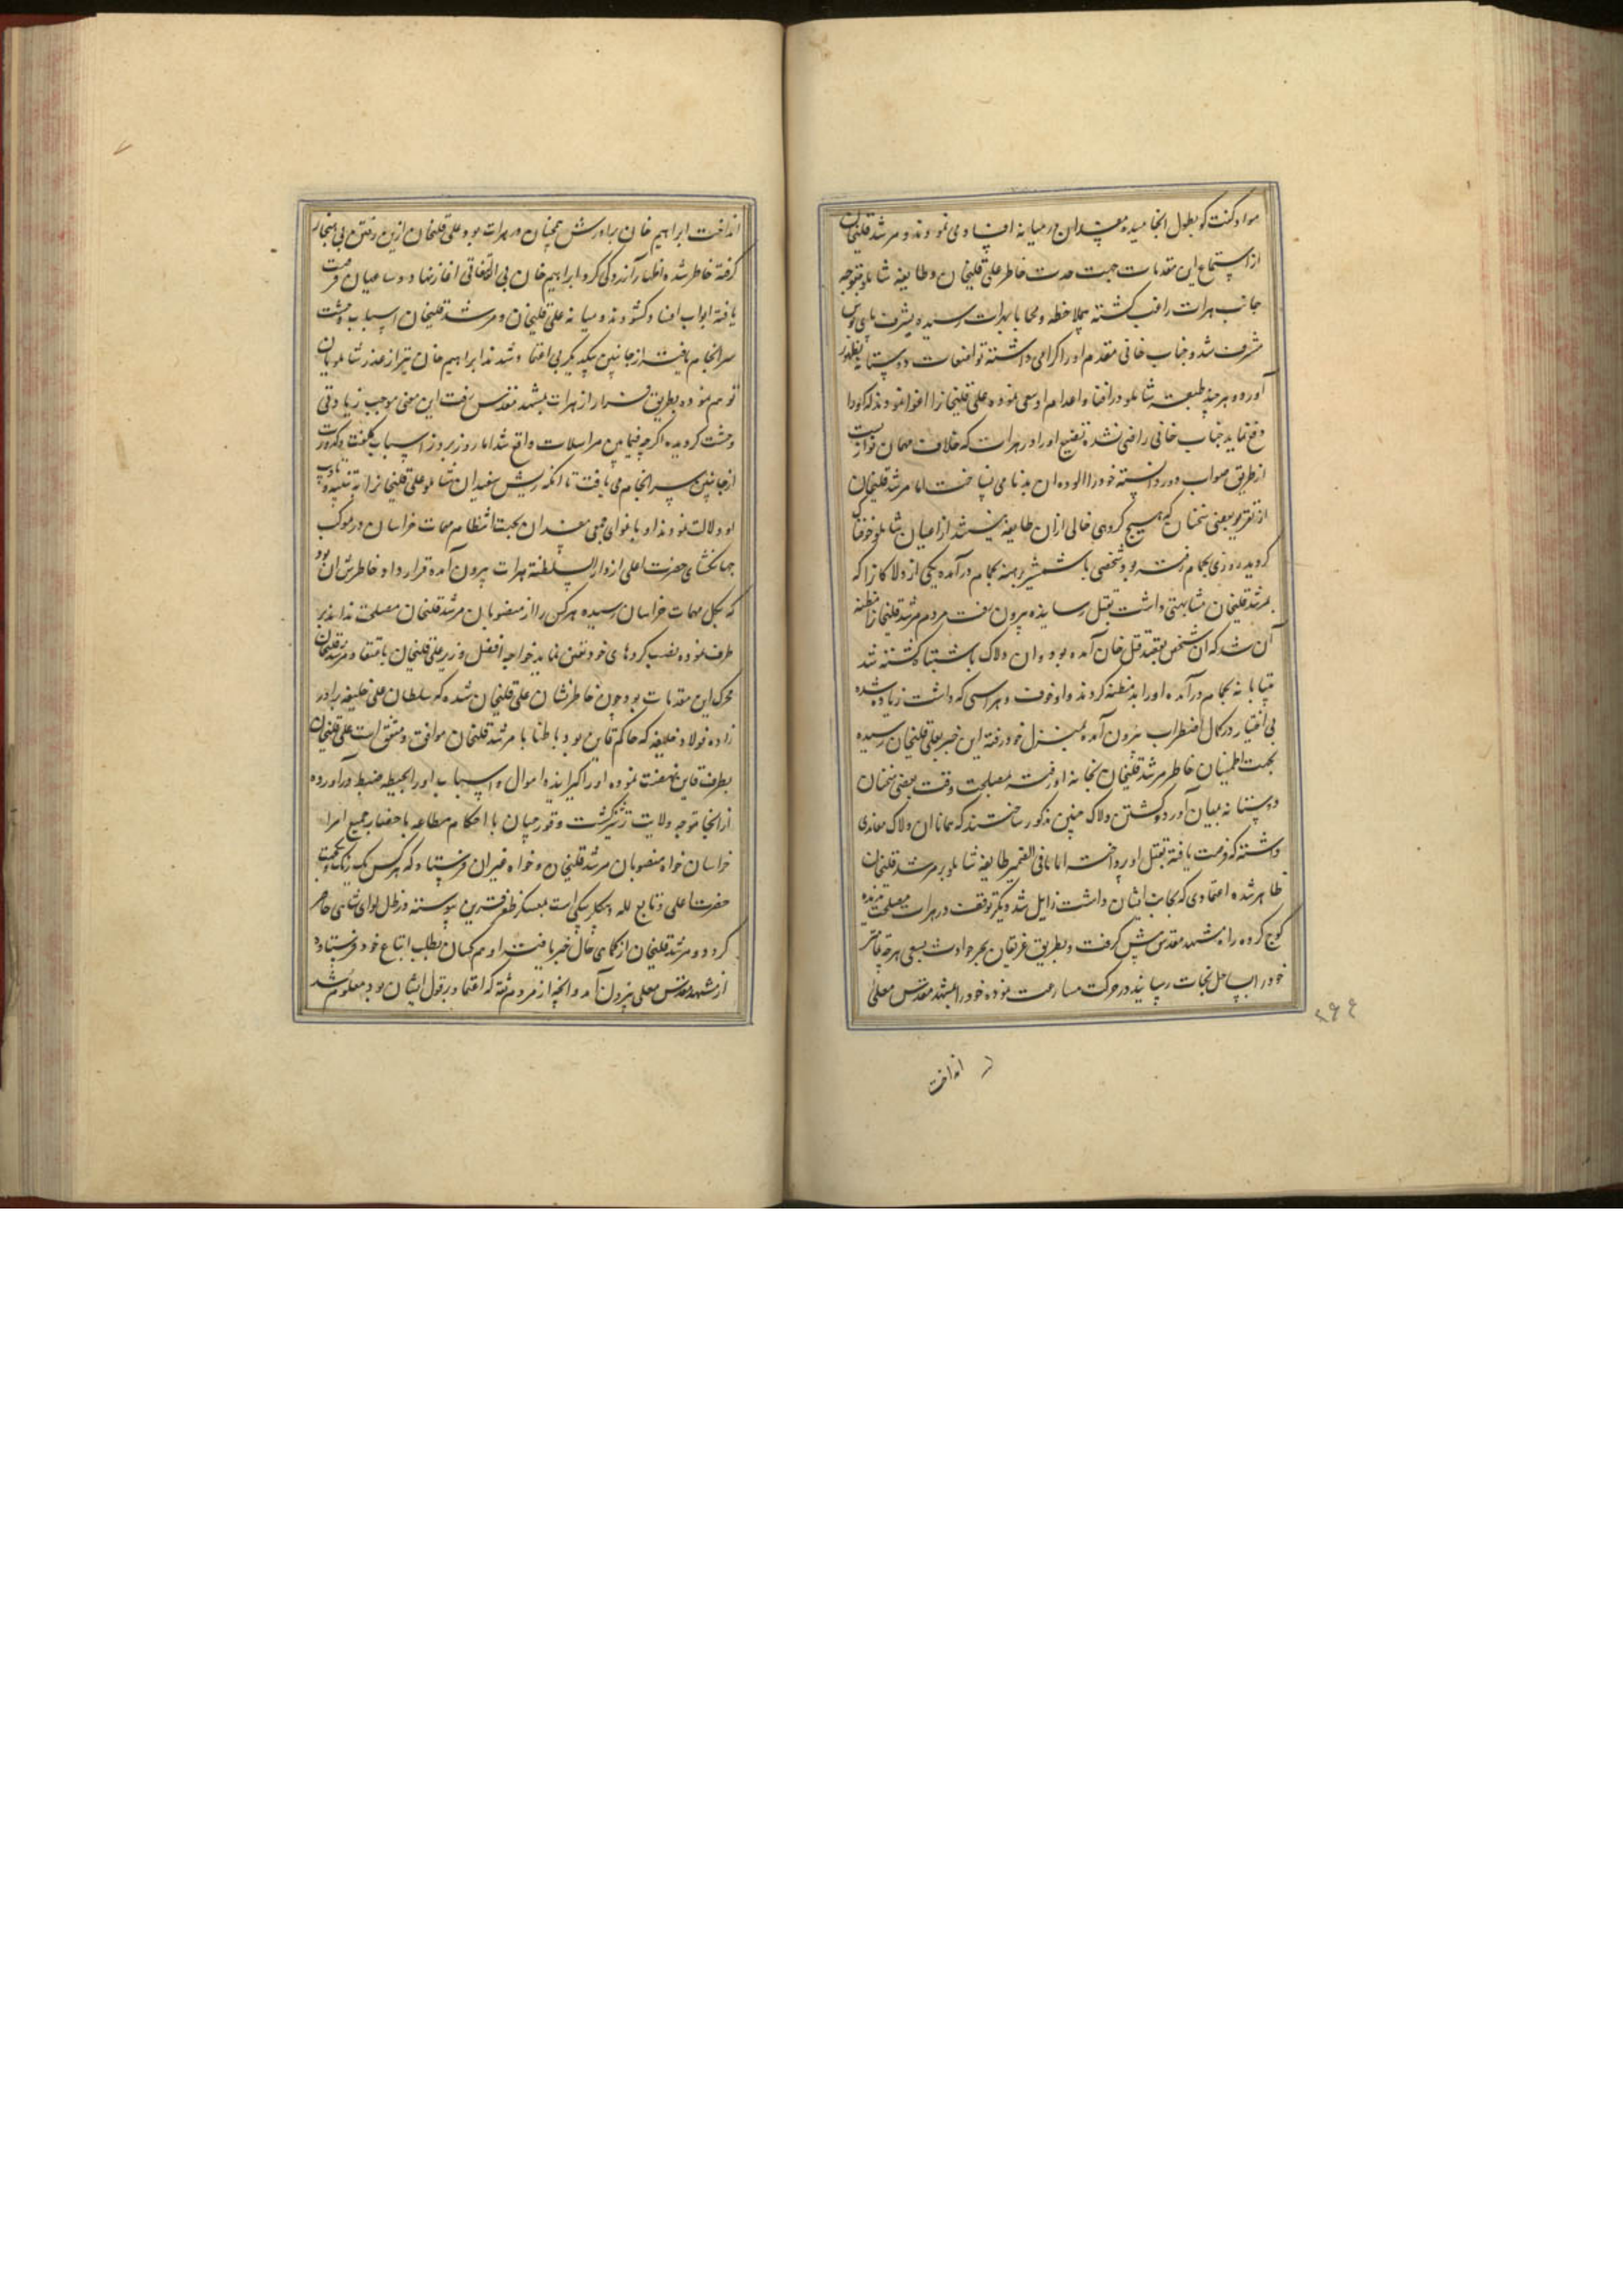 مواد گفت کو بطول انجامیده مفسدان در میانه افساد می نمودند و مرشد قلیخان
از استماع این مقدمات جهت خاطر علی قلیخان و طایفه شاملو متوجه
جانب هرات راغب کشته بیملاحظه و محابا بهرات رسیده بشرف پای بوس
مشرف شد و جناب خانی مقدم او را کرامی داشته تواضعات دوستانه بظهور
آورد و هر چند طبقه شاملو در افنا و اعدام او سعی نموده علی قلیخانرا اغوا نمودند که او را
دفع نماید جناب خانی راضی نشده تضییع او را در هرات که خلاف مهمان نوازیست
از طریق صواب دور دانسته خود را الوده ان بدنامی نساخت اما مرشد قلیخان
از تقریر بعضی سخنان که هیچ کروهی خالی ازان طایفه نیستند از اعیان شاملو خوفناک
کردید روزی بحمام رفته بود شخصی با شمشیر برهنه بحمام درآمده یکی از دلاکانرا که
بمرشد قلیخان مشابهتی داشت بقتل رسانیده بیرون رفت مردم مرشد قلیخانرا مظنه
آن شد که ان شخص بقصد قتل خان آمده بود و ان دلاک باشتباه کشته شد
بیتابانه بحمام درآمده او را بدمظنه کردند و او خوف و هراسی که داشت زیاده شده
بی اختیار در کمال اضطراب بیرون آمده بمنزل خود رفته این خبر بعلی قلیخان رسیده
بجهت اطمینان خاطر مرشد قلیخان بخانه او رفته بمصلحت وقت بعضی سخنان
دوستانه بمیان آورد و کشتن دلاک چنین مذکور ساختند که همانا ان دلاک معاندی
داشته که فرصت یافته بقتل او پرداخت اما مافی الضمیر طایفه شاملو بر مرشد قلیخان
ظاهر شده اعتمادی که بجانب ایشان داشت زایل شد دیکر توقف در هرات مصلحت ندیده
کوچ کرده راه مشهد مقدس پیش کرفت و بطریق غریقان بحر حوادث بسعی هر چه تمامتر
خود را بساحل نجات رسانیده در حرکت مسارعت نموده خود را بمشهد مقدس معلی
انداخت
انداخت ابراهیم خان برادرش همچنان در هرات بود علی قلیخان ازین رفتن بی هنجار
کرفته خاطر شده اظهار آزردکی کرد و ابراهیم خان بی التفاتی اغاز نهاد و ساعیان فرصت
یافته ابواب افساد کشودند و میانه علی قلیخان و مرشد قلیخان اسباب وحشت
سرانجام یافته از جانبین بیکدیکر بی اعتماد شدند ابراهیم خان نیز از غدر شاملویان
توهم نموده بطریق فرار از هرات بمشهد مقدس رفت این معنی موجب زیادتی
وحشت کردیده اکرچه فیمابین مراسلات واقع شد اما روز بروز اسباب کلفت و کدورت
از جانبین سرانجام می یافت تا انکه ریش سفیدان شاملو علی قلیخانرا به تنبیه و تادیب
او دلالت نمودند او باغوای مفسدان بجهت انتظام مهمات خراسان در موکب
جهانکشای حضرت اعلی از دار السلطنه هرات بیرون آمده قرار داد خاطرش ان بود
که بکل مهمات خراسان رسیده هر کس را از منصوبان مرشد قلیخان مصلحت نداند بر
طرف نموده نصب کردهای خود تعین نماید خواجه افضل وزیر علی قلیخان باعتقاد مرشد قلیخان
محرک این مقدمات بود چون خاطرنشان علی قلیخان شده که سلطان علی خلیفه برادر
زاده فولاد خلیفه که حاکم قاین بود باطنا با مرشد قلیخان موافق و متفق است علی قلیخان
بطرف قاین نهضت نموده او را کیرانید و اموال و اسباب او را بحیطه ضبط درآورده
از انجا متوجه ولایت ترشیز کشت و قورچیان با احکام مطاعه باحضار جمیع امرا
خراسان خواه منصوبان مرشد قلیخان و خواه غیران فرستاد که هر کس یکرنک و یکجهت
حضرت اعلی و تابع لله و بیکلربیکی است بعسکر ظفر قرین پیوسته در ظل لوای شاهی حاضر
کردد و مرشد قلیخان از کماهی حال خبر یافته او هم کسان بطلب اتباع خود فرستاده
از مشهد مقدس معلی بیرون آمد و انچه از مردم ثقه که اعتماد بر قول ایشان بود معلوم شد